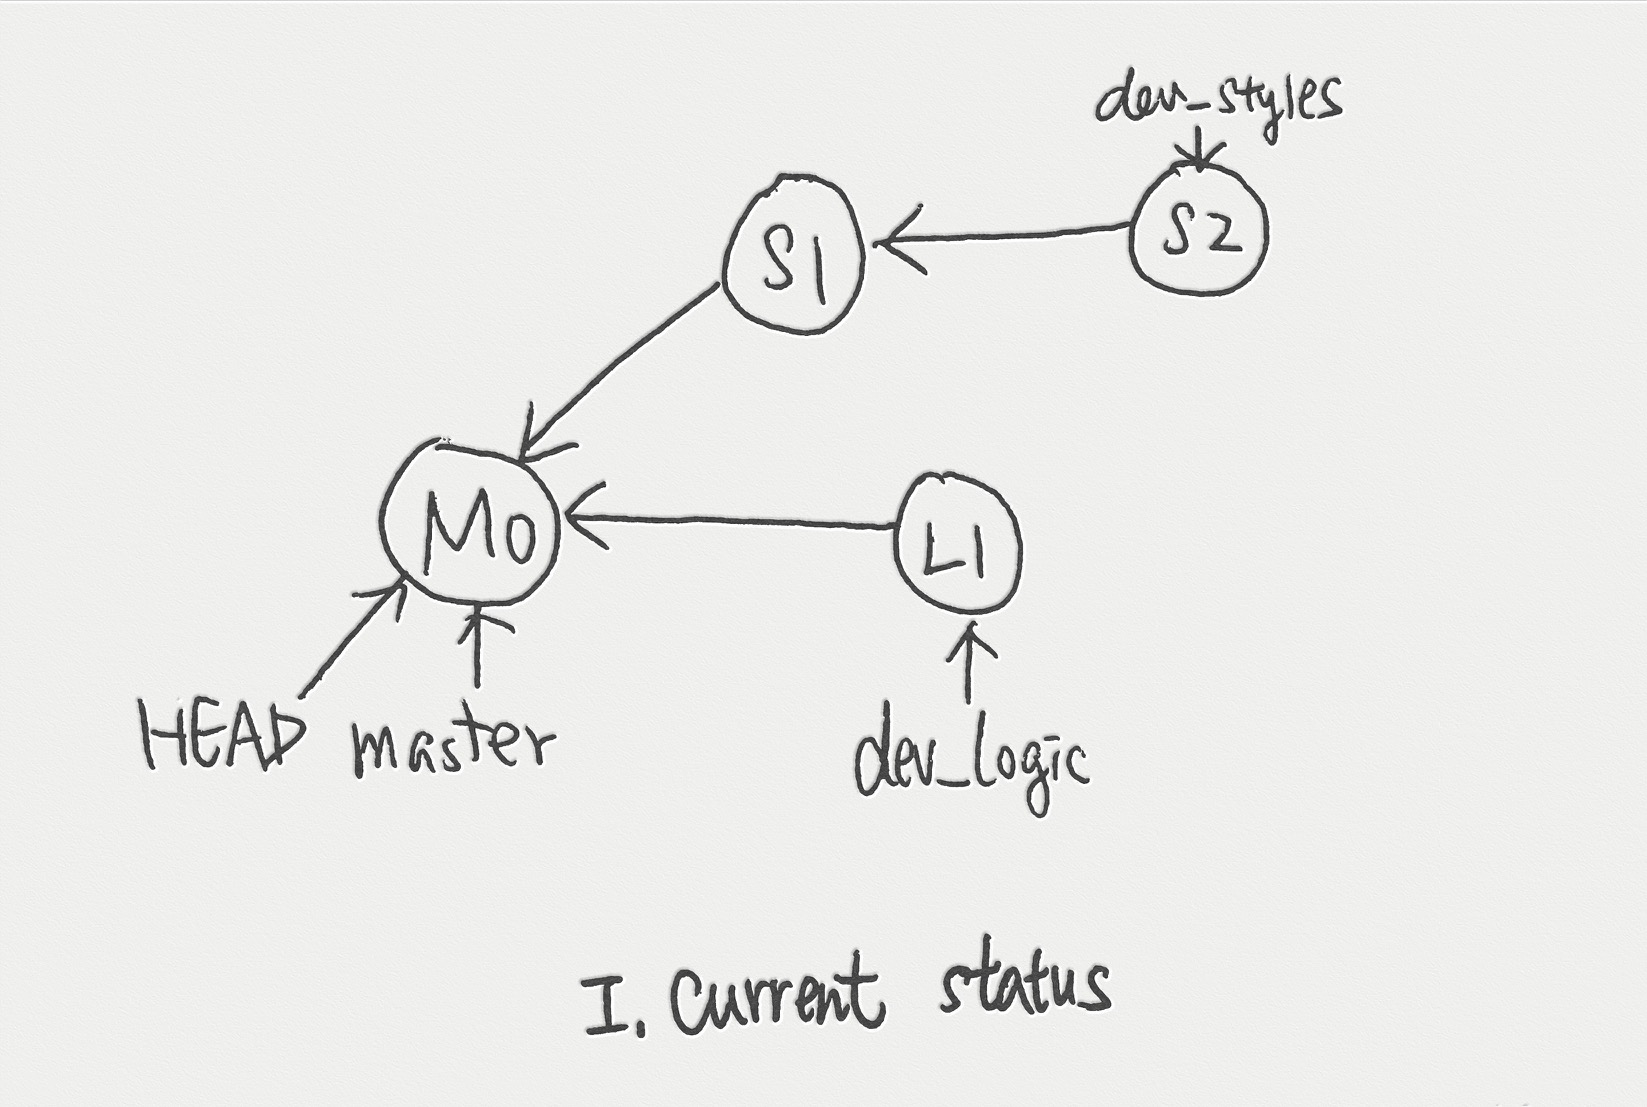 dev_styles
S1
S2
M0
L1
HEAD master
dev_logic
I. Current status